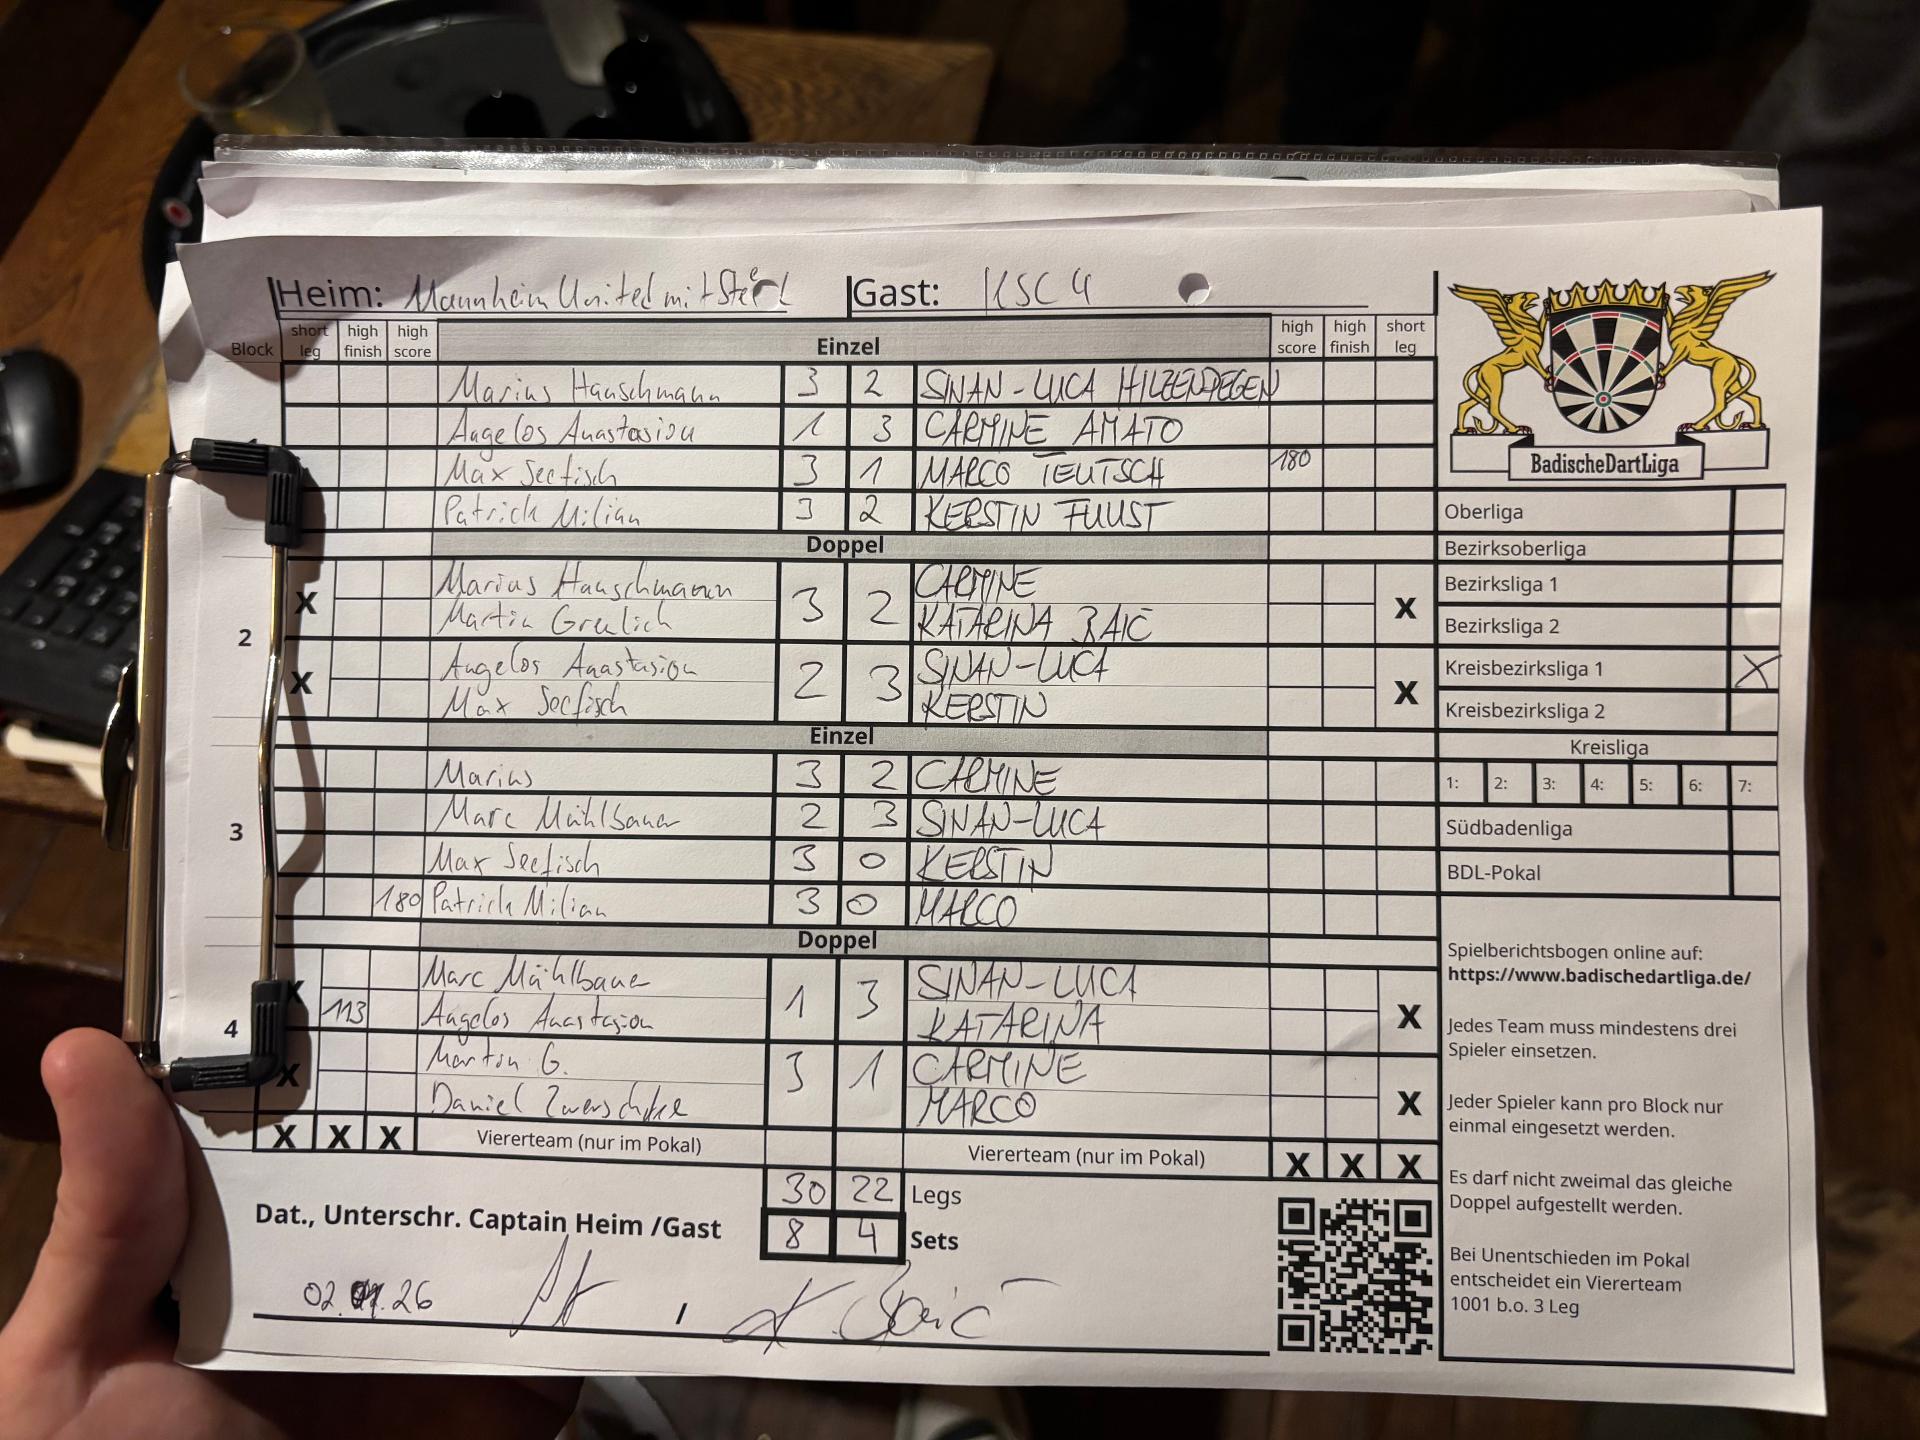 Heim: Mannheim United mit Steel Gast: KSC 4
Block short leg high finish high score Einzel high score high finish short leg
Marius Hauschmann 3 2 SINAN-LUCA HILZENDEGEN
Angelos Anastasiou 1 3 CARMINE AMATO
Max Seefisch 3 1 MARCO TEUTSCH 180
Patrick Milian 3 2 KERSTIN FUUST
Doppel
2
X Marius Hauschmann 3 2 CARMINE X
Martin Greulich KATARINA BAIĆ
X Angelos Anastasiou 2 3 SINAN-LUCA X
Max Seefisch KERSTIN
Einzel
3
Marius 3 2 CARMINE
Marc Mühlbauer 2 3 SINAN-LUCA
Max Seefisch 3 0 KERSTIN
180 Patrick Milian 3 0 MARCO
Doppel
4
X Marc Mühlbauer 1 3 SINAN-LUCA X
113 Angelos Anastasiou KATARINA
X Martin G. 3 1 CARMINE X
Daniel MARCO
X X X Viererteam (nur im Pokal) Viererteam (nur im Pokal) X X X
30 22 Legs
8 4 Sets
Dat., Unterschr. Captain Heim /Gast
02. .26 / K. Baić
BadischeDartLiga
Oberliga
Bezirksoberliga
Bezirksliga 1
Bezirksliga 2
Kreisbezirksliga 1 X
Kreisbezirksliga 2
Kreisliga
1: 2: 3: 4: 5: 6: 7:
Südbadenliga
BDL-Pokal
Spielberichtsbogen online auf:
https://www.badischedartliga.de/
Jedes Team muss mindestens drei
Spieler einsetzen.
Jeder Spieler kann pro Block nur
einmal eingesetzt werden.
Es darf nicht zweimal das gleiche
Doppel aufgestellt werden.
Bei Unentschieden im Pokal
entscheidet ein Viererteam
1001 b.o. 3 Leg